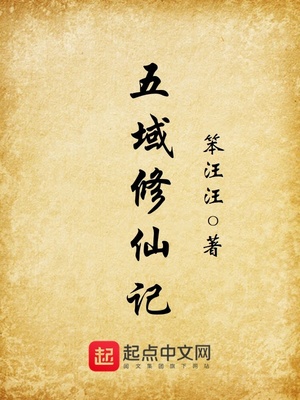 五域修仙记
笨汪汪○著
起 起点中文网
阅文集团旗下网站